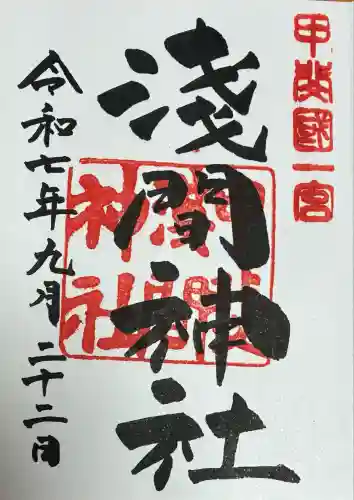 甲斐國一宮
淺間神社
淺間
神社
令和七年九月二十二日